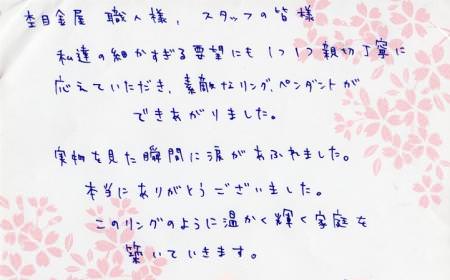 杢目金屋 職人様、スタッフの皆様
私達の細かすぎる要望にも1つ1つ親切丁寧に
応えていただき、素敵なリング、ペンダントが
できあがりました。
実物を見た瞬間に涙があふれました。
本当にありがとうございました。
このリングのように温かく輝く家庭を
築いていきます。